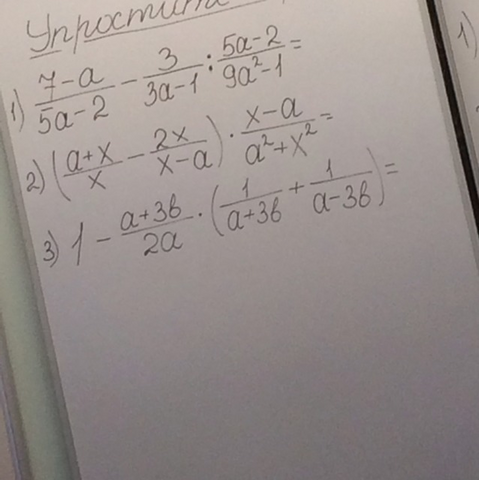 Упростить
1) (7-a)/(5a-2) - 3/(3a-1) : (5a-2)/(9a²-1) =
2) ((a+x)/x - 2x/(x-a)) · (x-a)/(a²+x²) =
3) 1 - (a+3b)/(2a) · (1/(a+3b) + 1/(a-3b)) =
1)